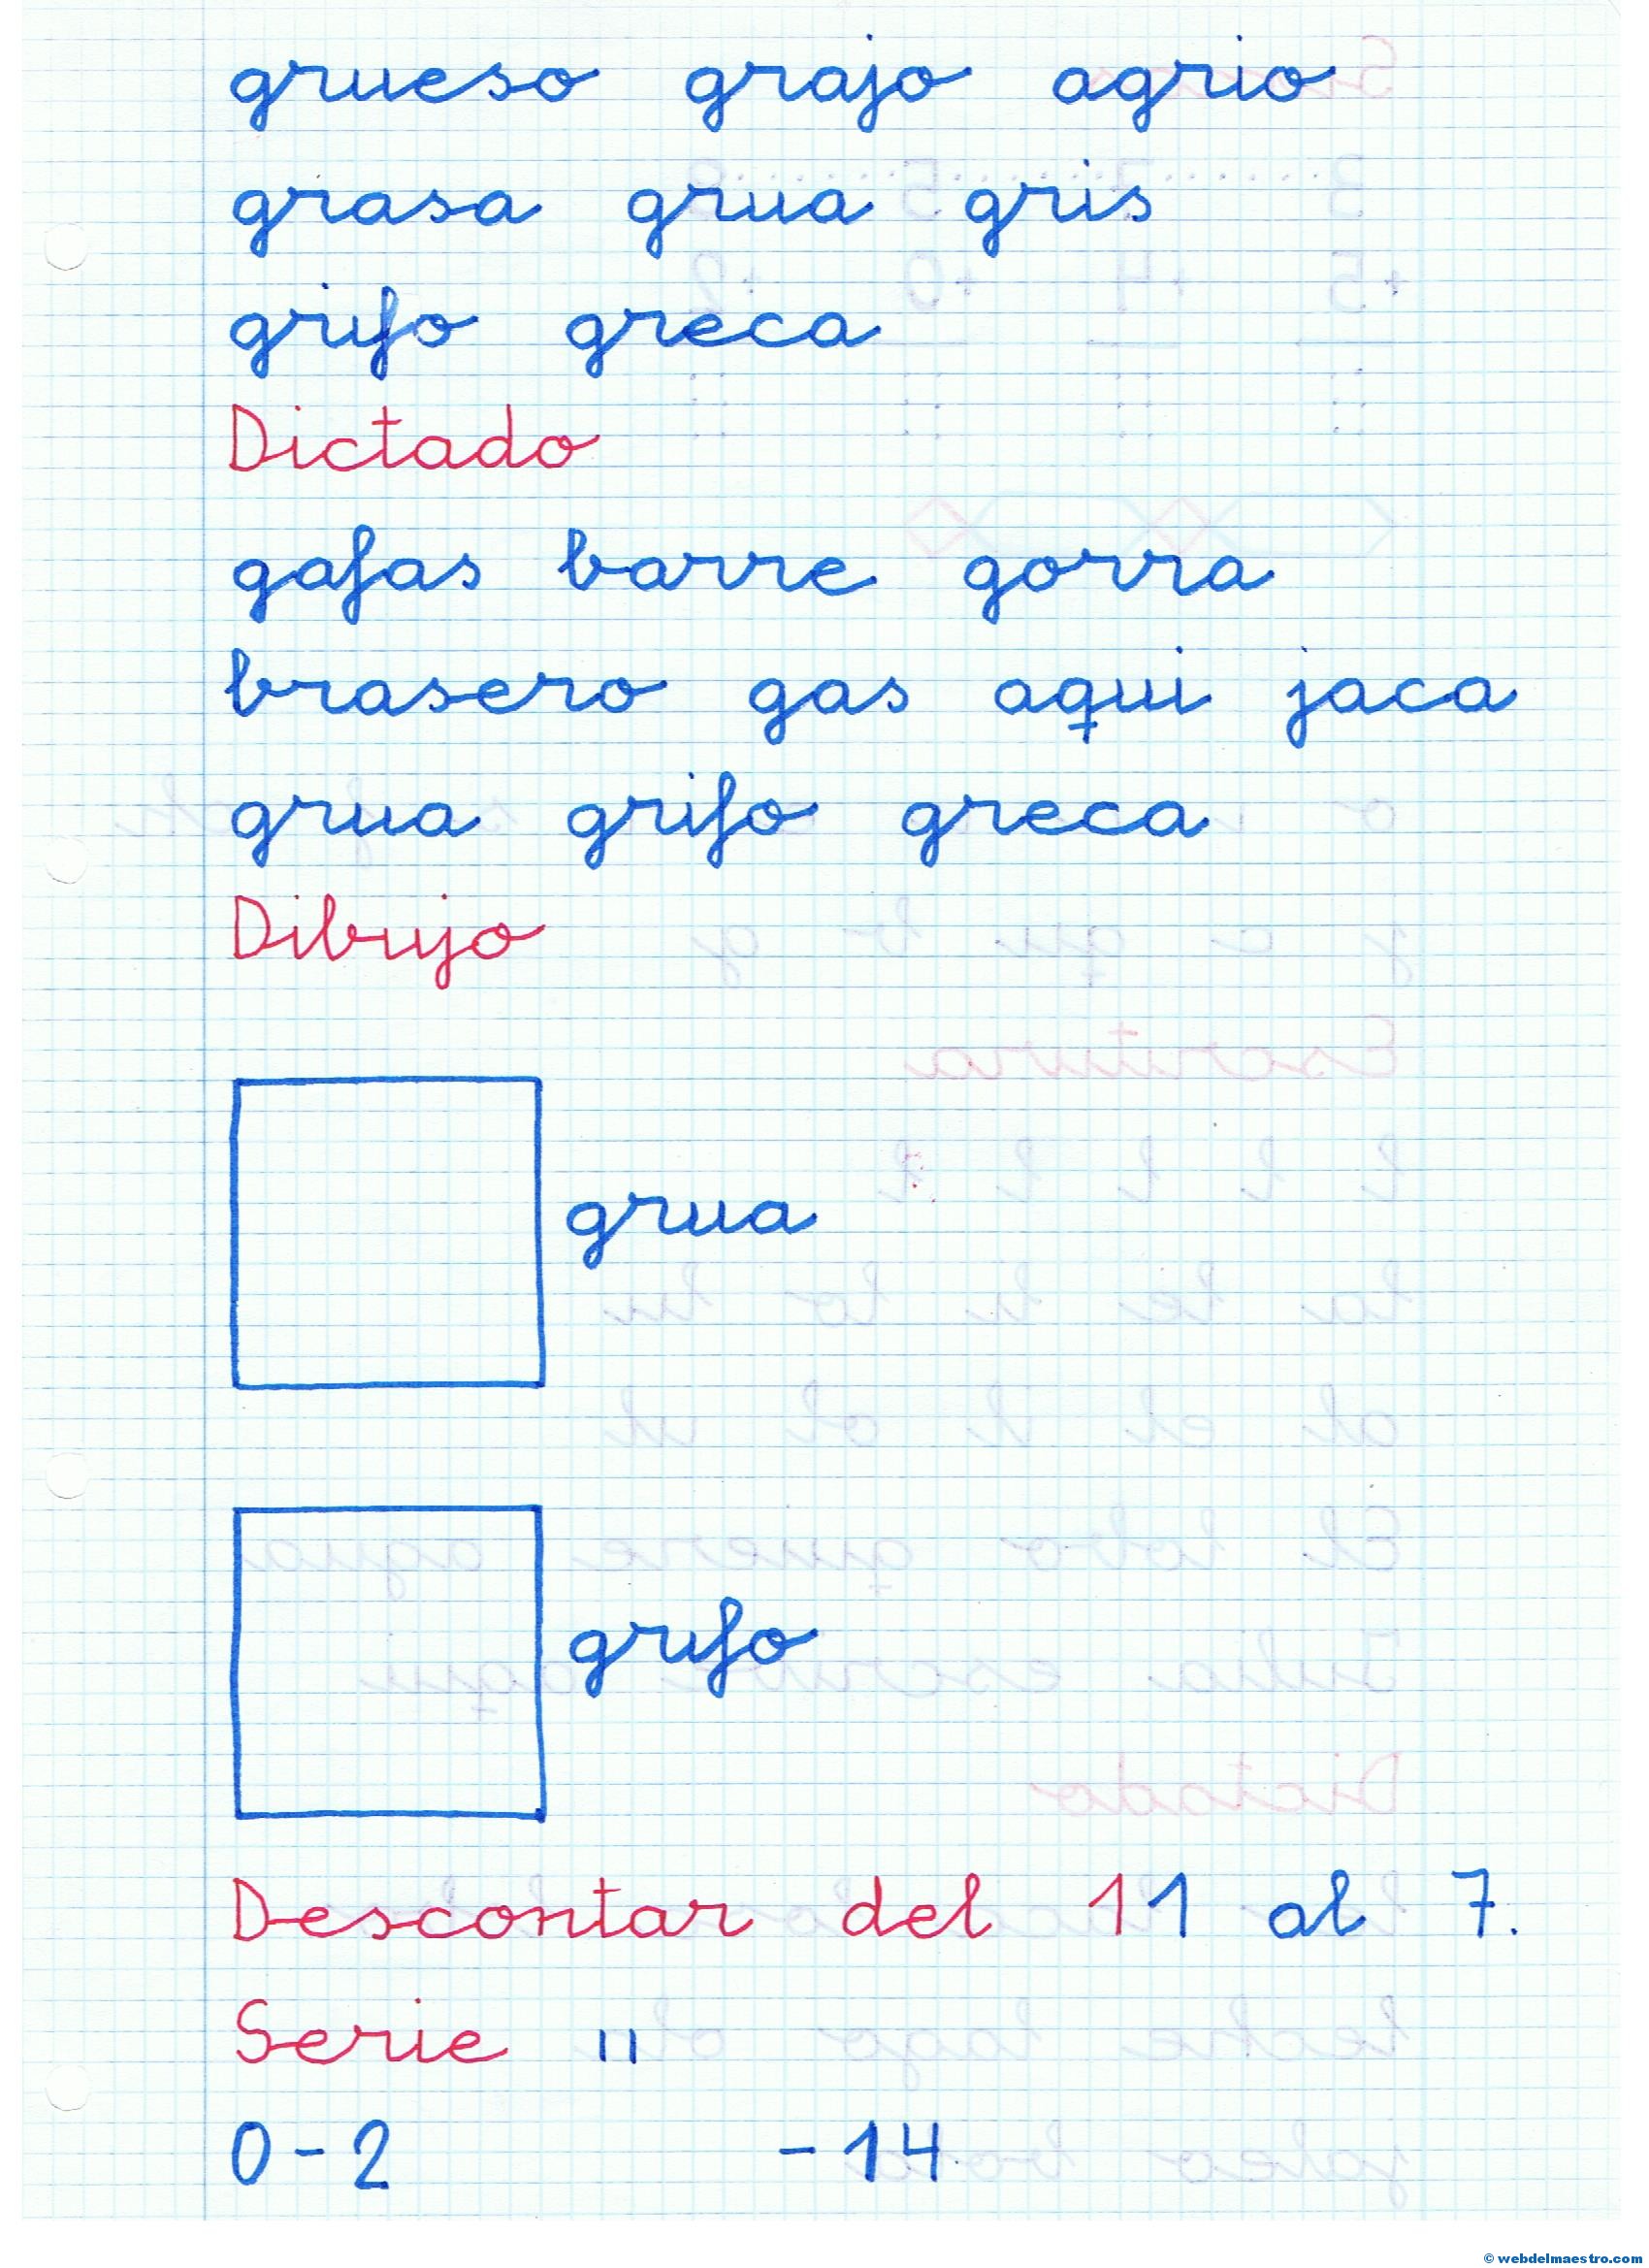 grueso grajo agrio
grasa grua gris
grifo greca
Dictado
gafas barre gorra
brasero gas aqui jaca
grua grifo greca
Dibujo
grua
grifo
Descontar del 11 al 7.
Serie "
0-2 -14
© webdelmaestro.com